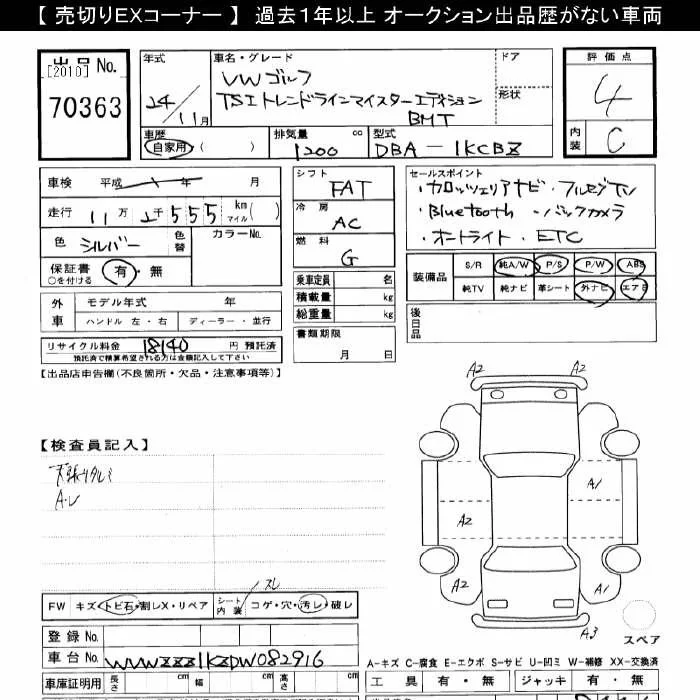 【 売切りEXコーナー 】 過去1年以上 オークション出品歴がない車両
出品 No.
[2010]
70363
年式
24/11月
車名・グレード
VWゴルフ
TSIトレンドラインマイスターエディション
BMT
ドア
形状
評価点
4
内装
C
車歴
自家用 ( )
排気量 cc
1200
型式
DBA-1KCBZ
車検 平成 年 月
走行 11万 2千555 km マイル( )
色 シルバー
色替
カラーNo.
保証書 有・無
○を付ける
外車
モデル年式 年
ハンドル 左・右 ディーラー・並行
リサイクル料金 18140 円 預託済
預託済で積算希望される方は金額記入して下さい
シフト
FAT
冷房
AC
燃料
G
乗車定員 名
積載量 kg
総重量 kg
書類期限
月 日
セールスポイント
・カロッツェリアナビ・フルセグTV
・Bluetooth ・バックカメラ
・オートライト・ETC
装備品
S/R 純A/W P/S P/W ABS
純TV 純ナビ 革シート 外ナビ エアB
後日品
【出品店申告欄(不良箇所・欠品・注意事項等)】
【検査員記入】
天張りタルミ
A.U
A2 A2
A1
A2
A2 A1
A3
スペア
スレ
FW キズ・トビ石・割レX・リペア シート内装 コゲ・穴・汚レ・破レ
登録 No.
車台 No. WVWZZZ1KZDW082916
車庫証明用 長さ cm 幅 cm 高さ cm
A-キズ C-腐食 E-エクボ S-サビ U-凹ミ W-補修 XX-交換済
工具 有・無 ジャッキ 有・無